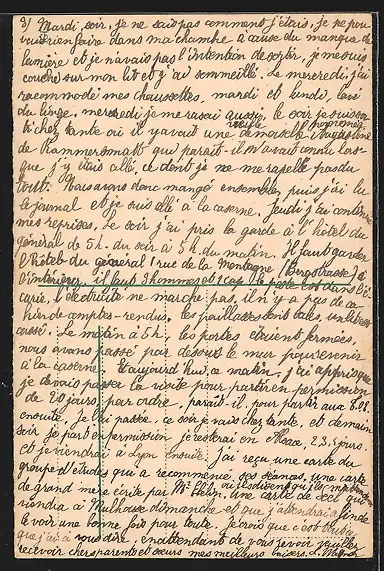 3) Mardi, soir, je ne sais pas comment j'étais, je ne pou
vais rien faire dans ma chambre à cause du manque de
lumière et je n'avais pas l'intention de sortir, je me suis
couché sur mon lit et j'ai sommeillé. Le mercredi, j'ai
raccommodé mes chaussettes, mardi et lundi, lavé
du linge, mercredi je me rasai aussi, le soir je suis allé
chez tante où il y avait une demoiselle Augustine
de Rammersmatt qui paraît-il m'avait connu lors-
que j'y étais allé, ce dont je ne me rapelle pas du
tout. Nous avons donc mangé ensemble, puis j'ai lu
le journal et je suis allé à la caserne. Jeudi j'ai continué
mes reprises. Le soir j'ai pris la garde à l'hôtel du
général de 5 h. du soir à 5 h. du matin. Il faut garder
l'hôtel du général 1 rue de la Montagne (Bergstrasse) à
l'intérieur, il faut 3 hommes et 1 cap. le poste est dans l'é-
curie, l'électricité ne marche pas, il n'y a pas de ca
hier de comptes-rendus, les paillasses sont sales,
cassé. Le matin à 5 h. les portes étaient fermées,
nous avons passé par dessous le mur pour revenir
à la caserne. Aujourd'hui, ce matin, j'ai appris que
je devais passer la visite pour partir en permission
de 20 jours, par ordre, paraît-il, pour partir aux
ensuite. Je l'ai passée, ce soir je vais chez tante, et demain
soir, je pars en permission je resterai en Alsace, 2, 3, 5 jours
et je viendrai à Lyon ensuite. J'ai reçu une carte du
groupe d'études qui a recommencé ses séances, une carte
de grand mère écrite par Mr
viendra à Mulhouse dimanche et que j'attendrai afin de
le voir une bonne fois pour toute. Je crois que c'est tout ce
que j'ai à vous dire, en attendant de vous revoir, veuillez
recevoir chers parents et sœurs mes meilleurs baisers.